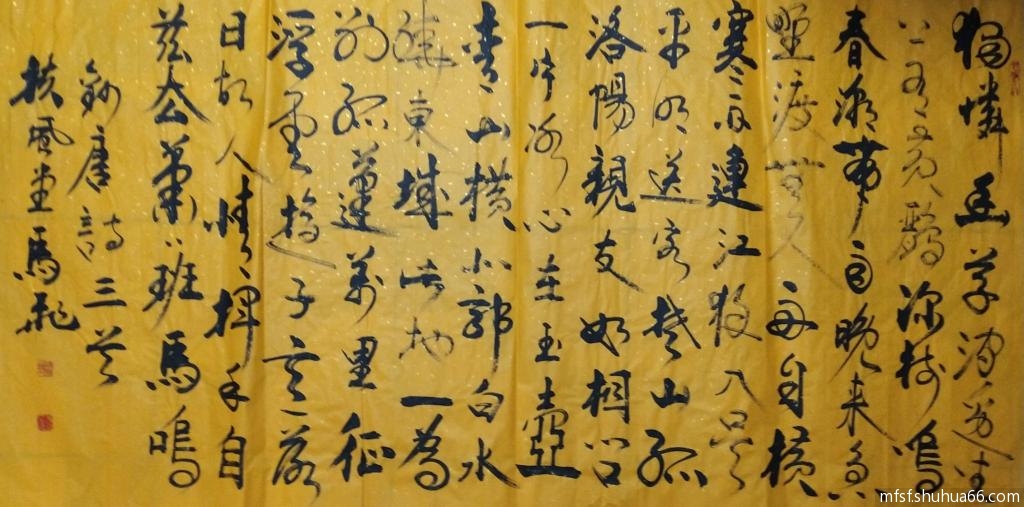 獨憐幽草澗邊生
上有黃鸝深樹鳴
春潮帶雨晚來急
野渡無人舟自橫
寒雨連江夜入吳
平明送客楚山孤
洛陽親友如相問
一片冰心在玉壺
青山橫北郭白水
繞東城此地一為
別孤蓬萬里征
浮雲遊子意落
日故人情揮手自
茲去蕭蕭班馬鳴
錄唐詩三首
扶風堂馬飛
mfsf.shuhua66.com